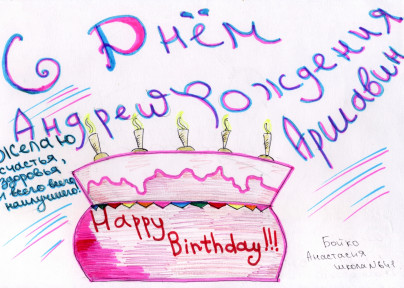 С Днём
Рождения
Андрей
Аршавин
Желаю
счастья,
здоровья,
и всего всего
наилучшего!
Happy
Birthday!!!
Бойко
Анастасия
школа №641